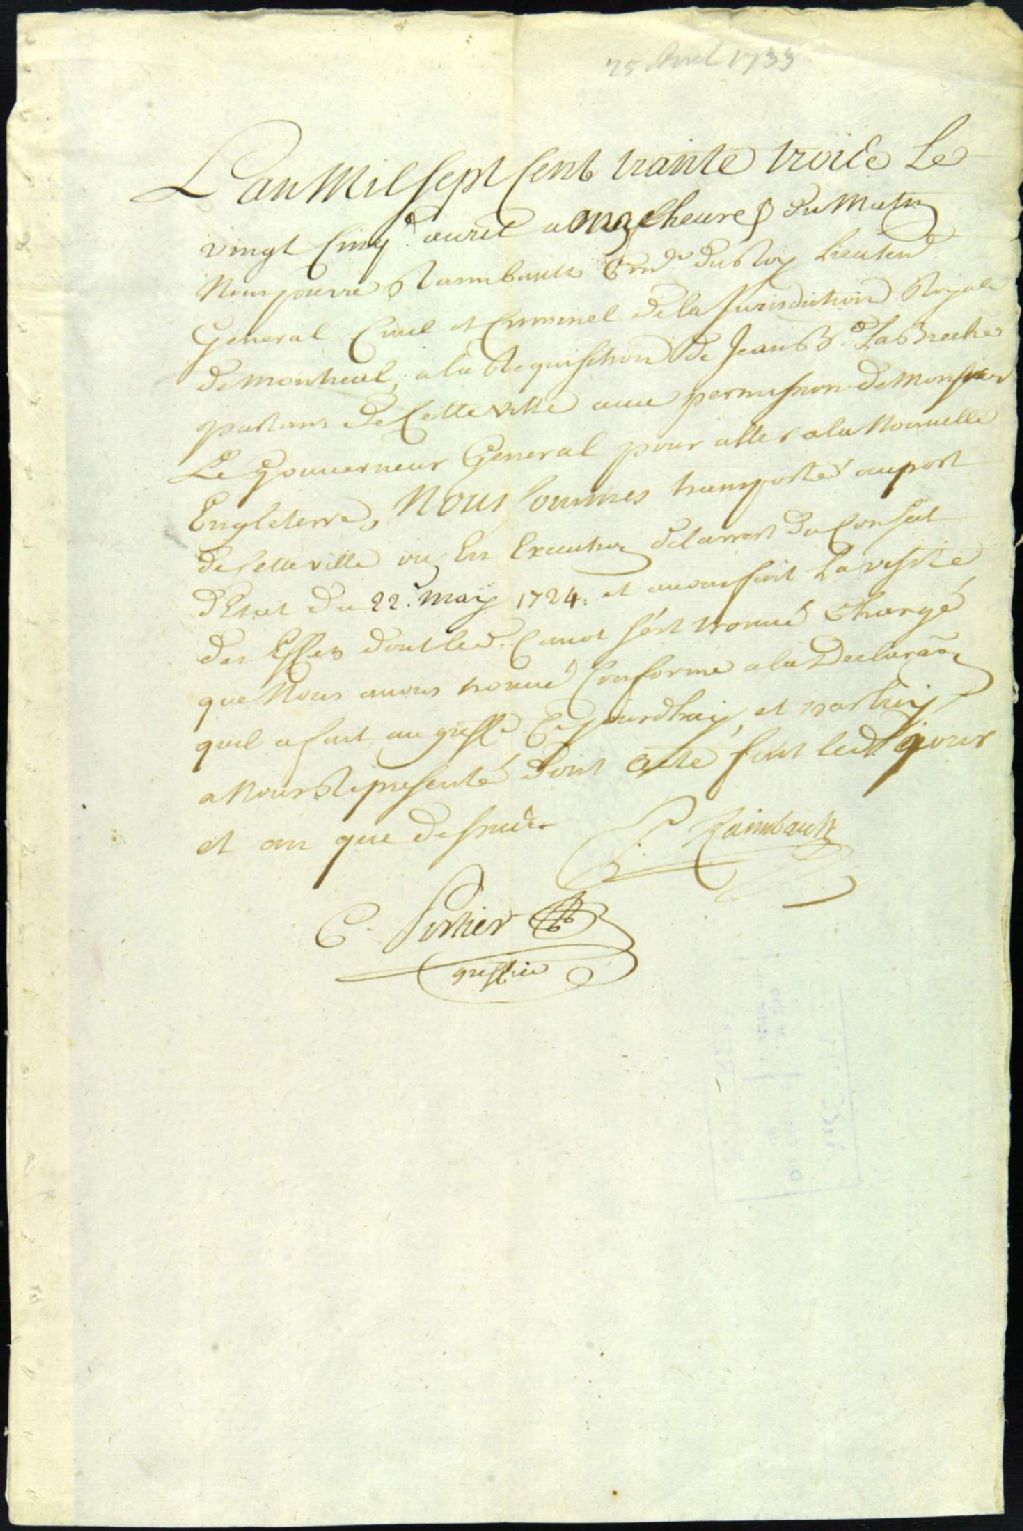 25 Avril 1733
L'an Mil Sept Cent trante troice Le
vingt Cinq.e avril a heures du Matin
Nous pierre Raimbault Con.er du Roy Lieuten.t
General Civil et Criminel de la Jurisdiction Royale
de Montreal, a la Requisition de Jean B. LaBreche
partant de Cette ville avec permission de Monsieur
Le Gouverneur General pour aller a la Nouvelle
Engleterre, Nous Sommes transporté au port
de Cette ville ou En Execution de larrest du Conseil
d'Etat du 22.e May 1724. et avons fait La visite
des Effets dont led. Canot s'est trouvé Chargé
que Nous avons trouvé Conforme a la Declaraõn
quil a fait au greffe Ce jourdhuy, et par luy
a Nous Representé dont acte fait led. jour
et an que dessus
P. Raimbault
C. Porlier
greffier